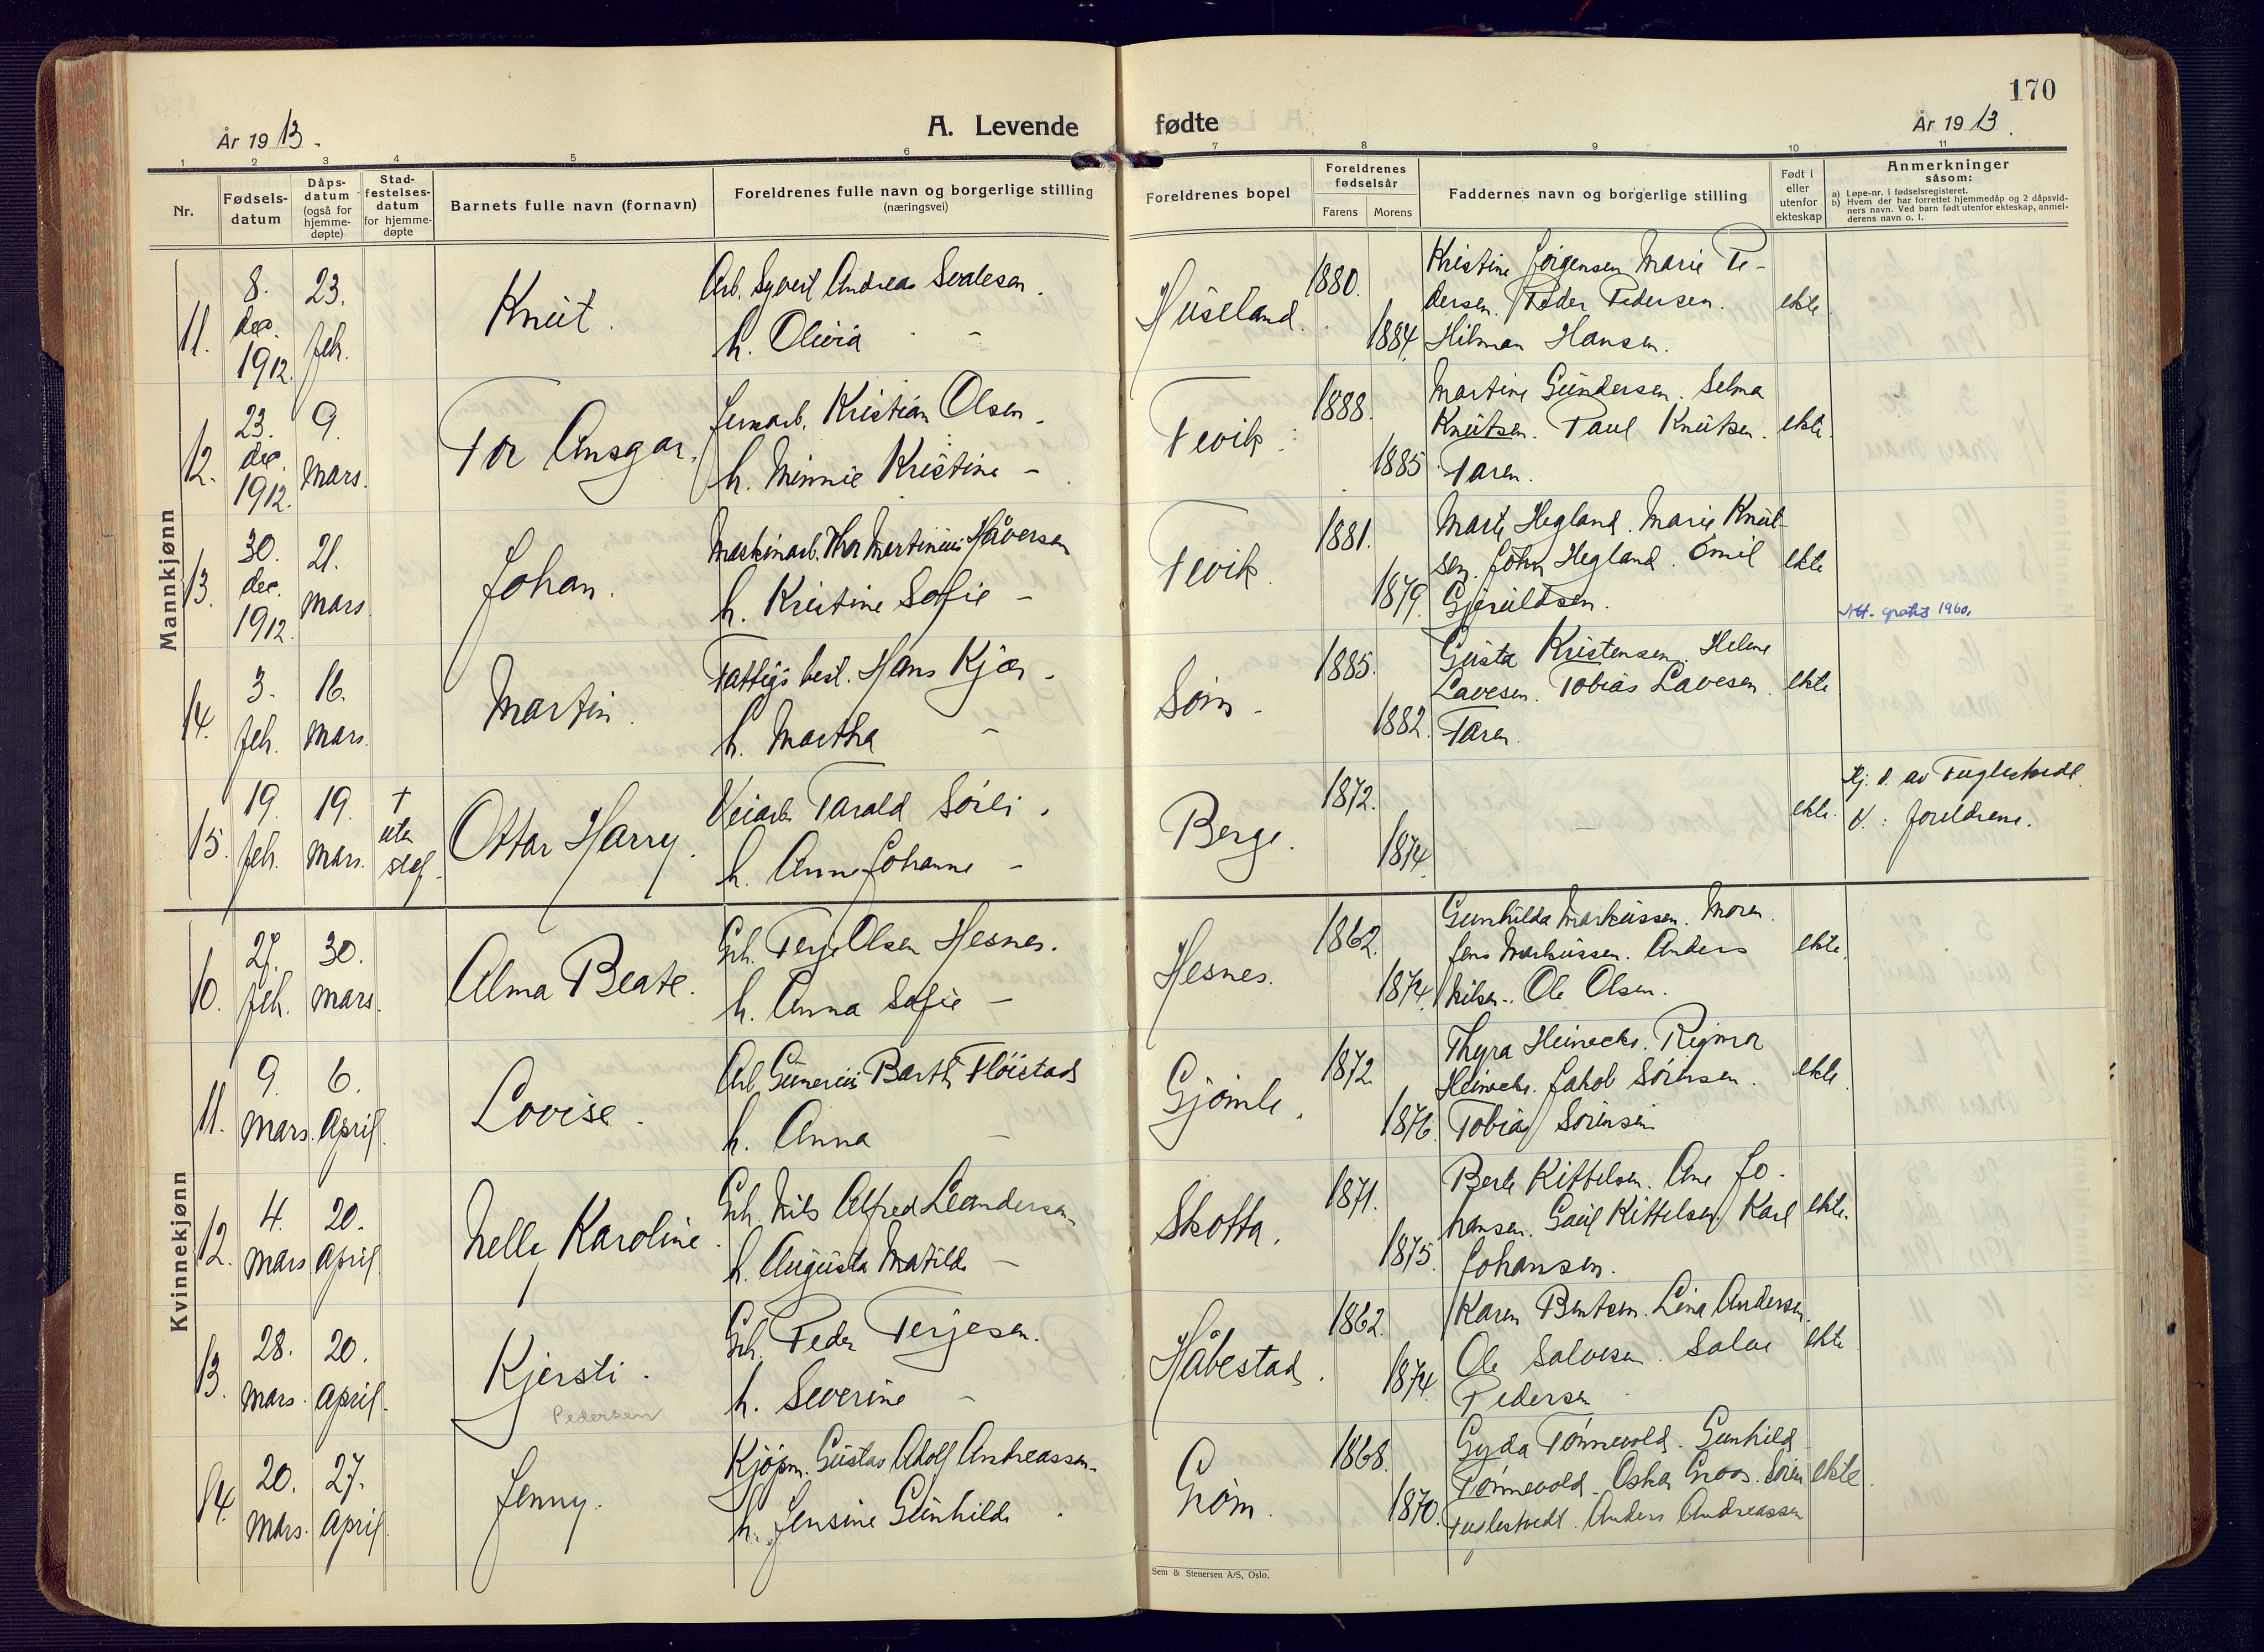 170
År 19 13.
A. Levende
fødte
År 19 13.
1 2 3 4 5 6 7 8 9 10 11
Nr.
Fødsels-
datum
Dåps-
datum
(også for
hjemme-
døpte)
Stad-
festelses-
datum
for hjemme-
døpte
Barnets fulle navn (fornavn)
Foreldrenes fulle navn og borgerlige stilling
(næringsvei)
Foreldrenes bopel
Foreldrenes
fødselsår
Farens Morens
Faddernes navn og borgerlige stilling
Født i
eller
utenfor
ekteskap
Anmerkninger
såsom:
a) Løpe-nr. i fødselsregisteret.
b) Hvem der har forrettet hjemmedåp og 2 dåpsvid-
ners navn. Ved barn født utenfor ekteskap, anmel-
derens navn o. l.
Mannkjønn
11.
8.
dec.
1912.
23.
feb.
Knut.
Arb. Syvert Andreas Svalesen.
h. Olivia -
Huseland.
1880.
1884.
Kristine Jörgensen Marie Pe-
dersen. Peder Pedersen.
Hilman Hansen.
ekte.
12.
23.
dec.
1912.
9.
mars.
Tor Ansgar.
Jernarb. Kristian Olsen.
h. Minnie Kristine -
Fevik.
1888.
1885
Martine Gundersen. Selma
Knutsen. Paul Knutsen.
Faren.
ekte.
13.
30.
dec.
1912.
21.
mars
Johan.
Maskinarb. Thor Martinius Håversen
h. Kristine Sofie -
Fevik.
1881.
1879.
Marte Hegland. Marie Knut-
sen. John Hegland. Emil
Gjeruldsen.
ekte
Att. gratis 1960.
14.
3.
feb.
16.
mars.
Martin.
Fattigs best. Hans Kjær.
h. Martha -
Söm -
1885.
1882.
Gusta Kristensen. Helene
Lavesen. Tobias Lavesen.
Faren.
ekte
15.
19.
feb.
19.
mars.
+
uten
staf.
Ottar Harry.
Veiarb. Tarald Sörli.
h. Anne Johanne -
Berge.
1872.
1874.
ekte.
Hj. d. av Fuglestvedt
V.: foreldrene.
Kvinnekjønn
10.
27.
feb.
30.
mars.
Alma Beate.
Grb. Terje Olsen Hesnes.
h. Anna Sofie -
Hesnes.
1862.
1874.
Gunhilda Markussen. Moren.
Jens Markussen. Anders
Nilsen. Ole Olsen.
ekte.
11.
9.
mars.
6.
April.
Lovise.
Arb. Gunerius Barth Flöistad
h. Anna -
Gjömle.
1872
1876.
Thyra Heinecke. Rigmor
Heinecke. Jakob Sörensen.
Tobias Sörensen
ekte.
12.
4.
mars
20.
April.
Nelly Karoline.
Grb. Nils Alfred Leandersen.
h. Augusta Matilde -
Skotta.
1871.
1875.
Berte Kittelsen. Ane Jo-
hansen. Kittelsen. Karl
Johansen.
ekte.
13.
28.
mars.
20.
April.
Kjersti.
Pedersen
Grb. Peder Terjesen.
h. Severine -
Håbestad.
1862.
1874.
Karen Bentsen. Lina Andersen.
Ole Salvesen. Salve
Pedersen
ekte
14.
20.
mars.
27.
April.
Jenny.
Kjöpm. Gustav Adolf Andreassen.
h. Jensine Gunhilde
Gröm.
1868.
1870.
Gyda Tönnevold. Gunhild
Tönnevold. Oskar Groos. Sören
Fuglestvedt. Anders Andreassen
ekte.
Sem & Stenersen A/S, Oslo.